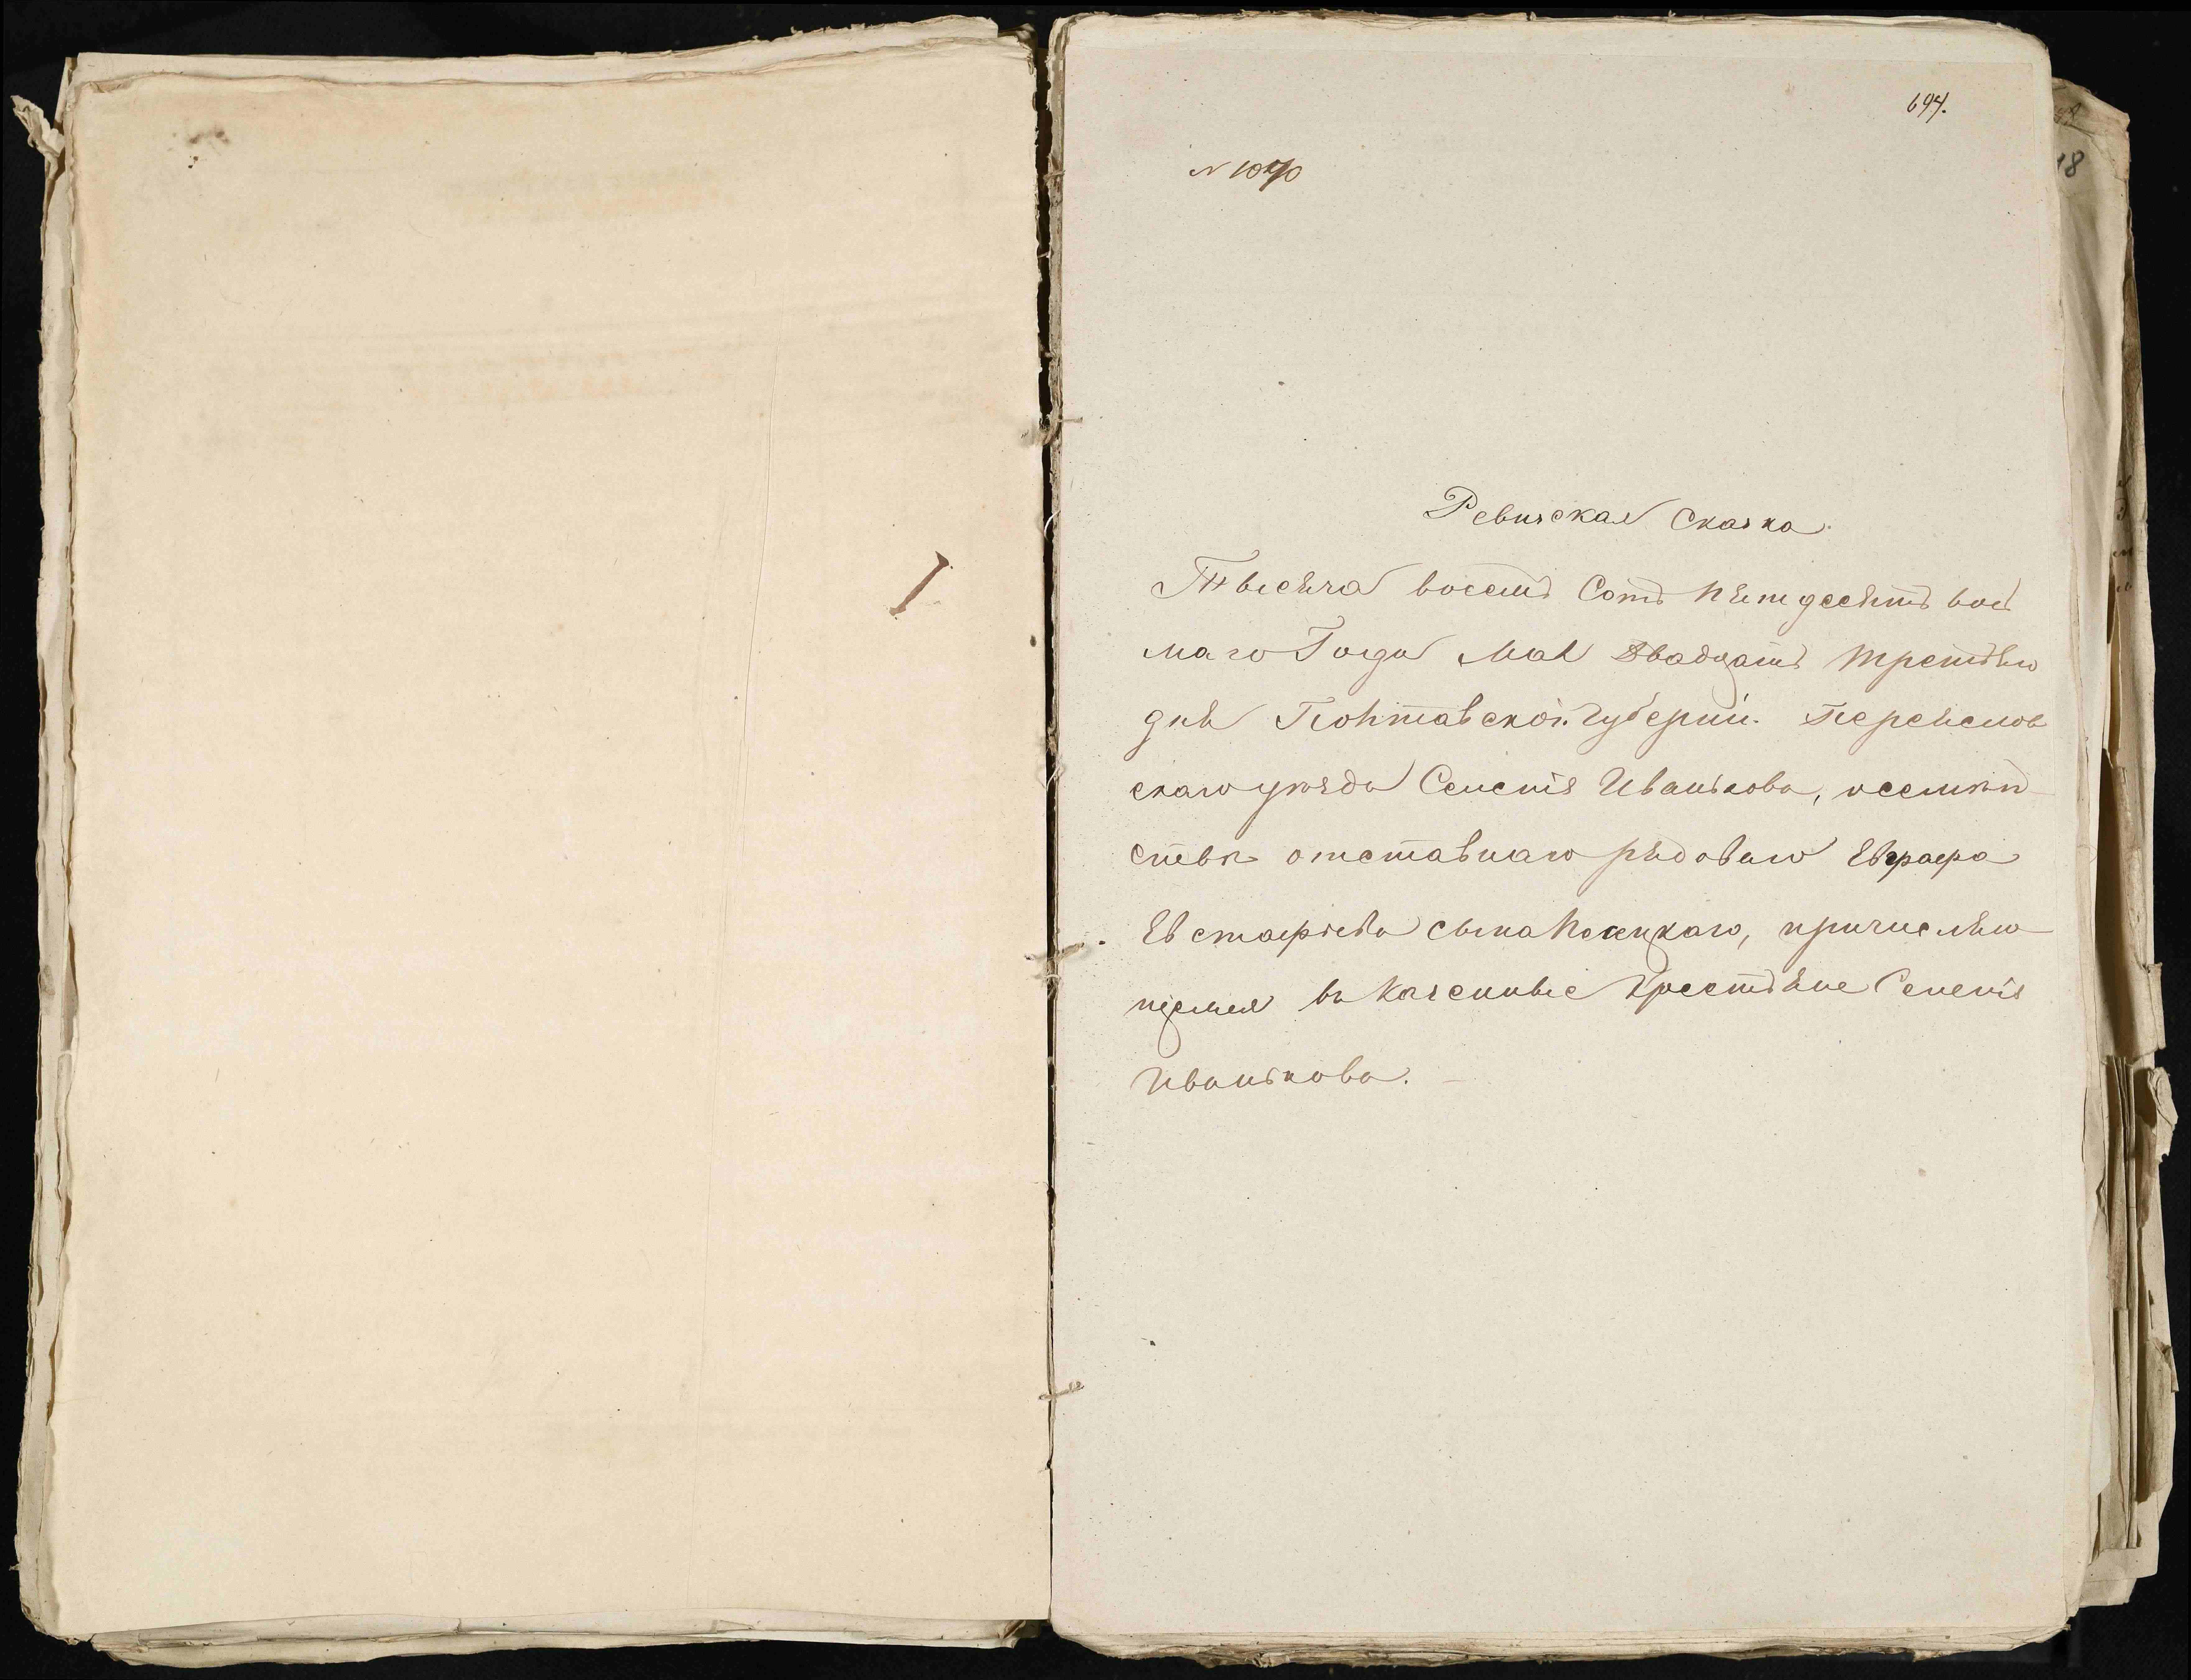 694.
18
N 1040
Ревизская Сказка.
Тысяча восемь Сотъ пятдесятъ вось
маго Года Мая двадцать третьяго
дня Полтавской Губерніи. Переяслов
скаго уѣзда Селенія Иванькова, о семѣй
ствѣ отставнаго рядоваго
Евстафіева сына причисляю
щемся въ Казенные Крестьяне Селенія
Иванькова.